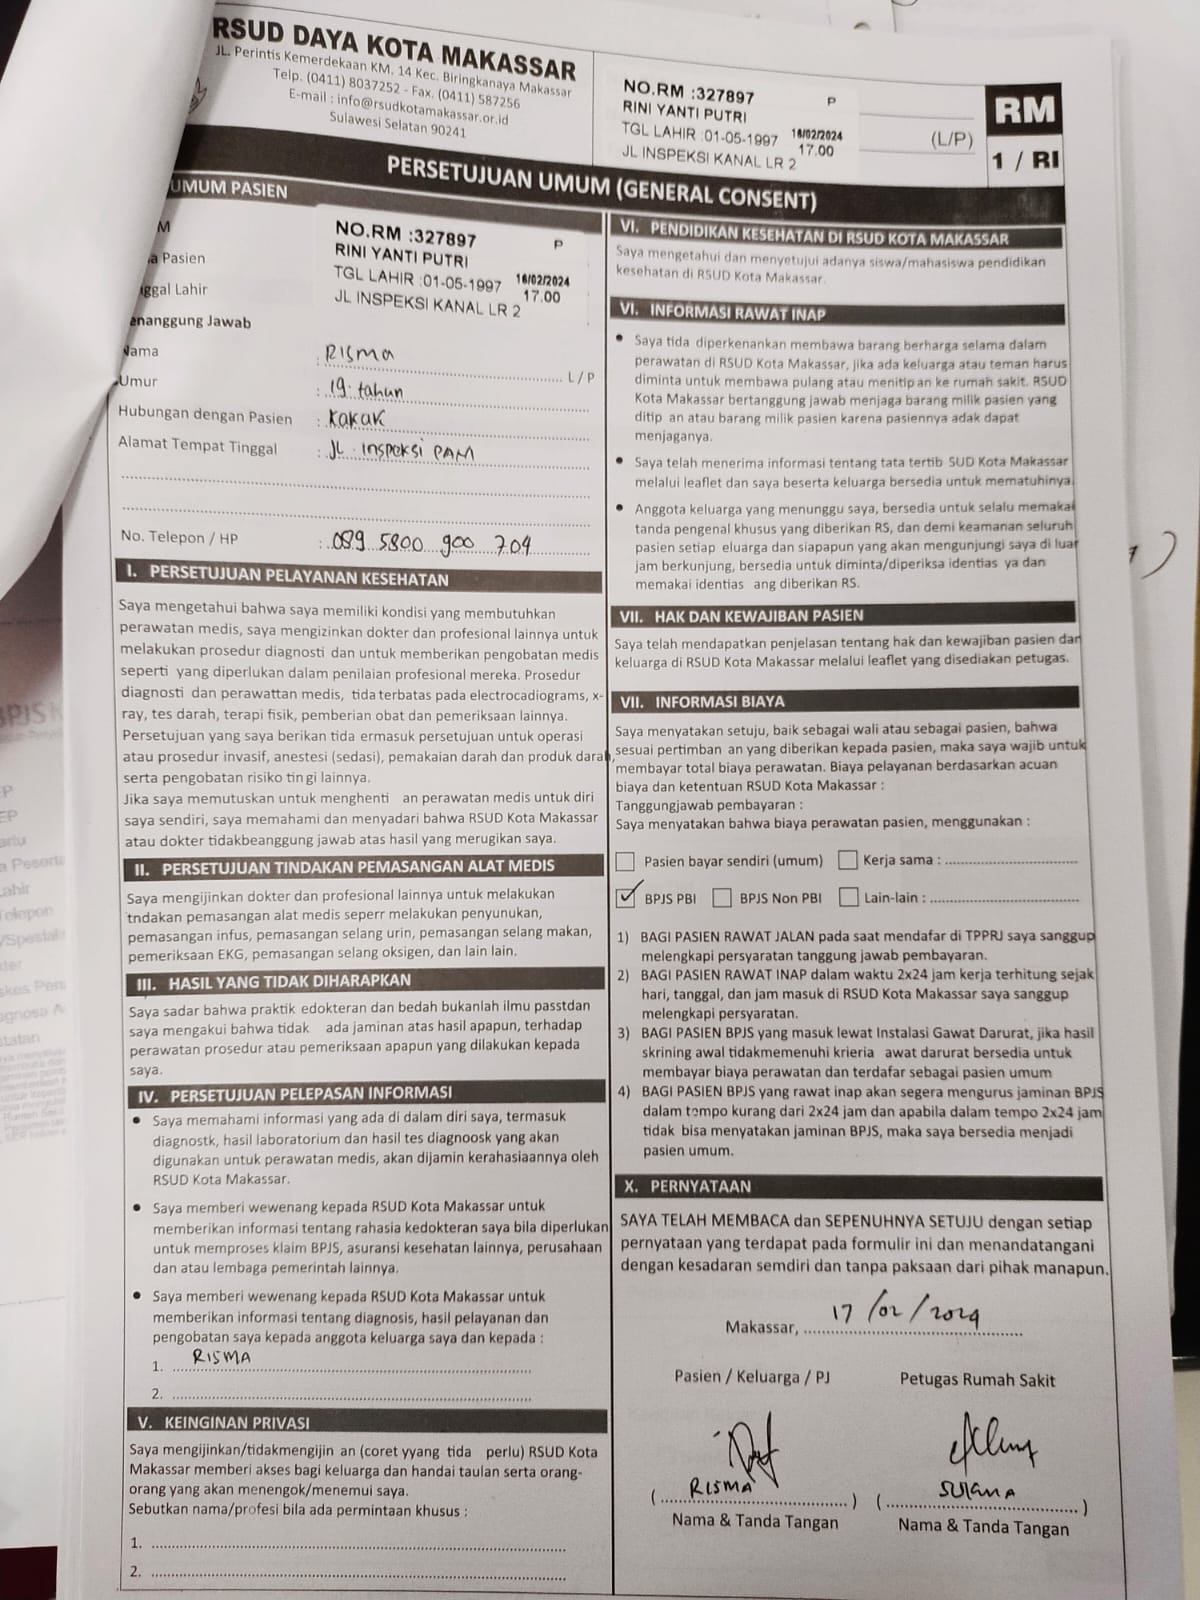 RSUD DAYA KOTA MAKASSAR
JL. Perintis Kemerdekaan KM. 14 Kec. Biringkanaya Makassar
Telp. (0411) 8037252 - Fax. (0411) 587256
E-mail : info@rsudkotamakassar.or.id
Sulawesi Selatan 90241
NO.RM :327897 P
RINI YANTI PUTRI
TGL LAHIR :01-05-1997 16/02/2024
17.00
JL INSPEKSI KANAL LR 2
(L/P)
RM
1 / RI
PERSETUJUAN UMUM (GENERAL CONSENT)
UMUM PASIEN
M
a Pasien
ggal Lahir
NO.RM :327897 P
RINI YANTI PUTRI
TGL LAHIR :01-05-1997 16/02/2024
17.00
JL INSPEKSI KANAL LR 2
enanggung Jawab
Nama : RISMA L / P
Umur : 19 tahun
Hubungan dengan Pasien : KAKAK
Alamat Tempat Tinggal : JL. Inspeksi PAM
No. Telepon / HP : 089 5800 900 704
I. PERSETUJUAN PELAYANAN KESEHATAN
Saya mengetahui bahwa saya memiliki kondisi yang membutuhkan
perawatan medis, saya mengizinkan dokter dan profesional lainnya untuk
melakukan prosedur diagnosti dan untuk memberikan pengobatan medis
seperti yang diperlukan dalam penilaian profesional mereka. Prosedur
diagnosti dan perawattan medis, tida terbatas pada electrocadiograms, x-
ray, tes darah, terapi fisik, pemberian obat dan pemeriksaan lainnya.
Persetujuan yang saya berikan tida ermasuk persetujuan untuk operasi
atau prosedur invasif, anestesi (sedasi), pemakaian darah dan produk darah,
serta pengobatan risiko tingi lainnya.
Jika saya memutuskan untuk menghenti an perawatan medis untuk diri
saya sendiri, saya memahami dan menyadari bahwa RSUD Kota Makassar
atau dokter tidakbeanggung jawab atas hasil yang merugikan saya.
II. PERSETUJUAN TINDAKAN PEMASANGAN ALAT MEDIS
Saya mengijinkan dokter dan profesional lainnya untuk melakukan
tndakan pemasangan alat medis seperr melakukan penyunukan,
pemasangan infus, pemasangan selang urin, pemasangan selang makan,
pemeriksaan EKG, pemasangan selang oksigen, dan lain lain.
III. HASIL YANG TIDAK DIHARAPKAN
Saya sadar bahwa praktik edokteran dan bedah bukanlah ilmu passtdan
saya mengakui bahwa tidak ada jaminan atas hasil apapun, terhadap
perawatan prosedur atau pemeriksaan apapun yang dilakukan kepada
saya.
IV. PERSETUJUAN PELEPASAN INFORMASI
• Saya memahami informasi yang ada di dalam diri saya, termasuk
diagnostk, hasil laboratorium dan hasil tes diagnoosk yang akan
digunakan untuk perawatan medis, akan dijamin kerahasiaannya oleh
RSUD Kota Makassar.
• Saya memberi wewenang kepada RSUD Kota Makassar untuk
memberikan informasi tentang rahasia kedokteran saya bila diperlukan
untuk memproses klaim BPJS, asuransi kesehatan lainnya, perusahaan
dan atau lembaga pemerintah lainnya.
• Saya memberi wewenang kepada RSUD Kota Makassar untuk
memberikan informasi tentang diagnosis, hasil pelayanan dan
pengobatan saya kepada anggota keluarga saya dan kepada :
1. RISMA
2.
V. KEINGINAN PRIVASI
Saya mengijinkan/tidakmengijin an (coret yyang tida perlu) RSUD Kota
Makassar memberi akses bagi keluarga dan handai taulan serta orang-
orang yang akan menengok/menemui saya.
Sebutkan nama/profesi bila ada permintaan khusus :
1.
2.
VI. PENDIDIKAN KESEHATAN DI RSUD KOTA MAKASSAR
Saya mengetahui dan menyetujui adanya siswa/mahasiswa pendidikan
kesehatan di RSUD Kota Makassar.
VI. INFORMASI RAWAT INAP
• Saya tida diperkenankan membawa barang berharga selama dalam
perawatan di RSUD Kota Makassar, jika ada keluarga atau teman harus
diminta untuk membawa pulang atau menitip an ke rumah sakit. RSUD
Kota Makassar bertanggung jawab menjaga barang milik pasien yang
ditip an atau barang milik pasien karena pasiennya adak dapat
menjaganya.
• Saya telah menerima informasi tentang tata tertib SUD Kota Makassar
melalui leaflet dan saya beserta keluarga bersedia untuk mematuhinya.
• Anggota keluarga yang menunggu saya, bersedia untuk selalu memakai
tanda pengenal khusus yang diberikan RS, dan demi keamanan seluruh
pasien setiap eluarga dan siapapun yang akan mengunjungi saya di luar
jam berkunjung, bersedia untuk diminta/diperiksa identias ya dan
memakai identias ang diberikan RS.
VII. HAK DAN KEWAJIBAN PASIEN
Saya telah mendapatkan penjelasan tentang hak dan kewajiban pasien dan
keluarga di RSUD Kota Makassar melalui leaflet yang disediakan petugas.
VII. INFORMASI BIAYA
Saya menyatakan setuju, baik sebagai wali atau sebagai pasien, bahwa
sesuai pertimban an yang diberikan kepada pasien, maka saya wajib untuk
membayar total biaya perawatan. Biaya pelayanan berdasarkan acuan
biaya dan ketentuan RSUD Kota Makassar :
Tanggungjawab pembayaran :
Saya menyatakan bahwa biaya perawatan pasien, menggunakan :
Pasien bayar sendiri (umum) Kerja sama :
✓ BPJS PBI BPJS Non PBI Lain-lain :
1) BAGI PASIEN RAWAT JALAN pada saat mendafar di TPPRJ saya sanggup
melengkapi persyaratan tanggung jawab pembayaran.
2) BAGI PASIEN RAWAT INAP dalam waktu 2x24 jam kerja terhitung sejak
hari, tanggal, dan jam masuk di RSUD Kota Makassar saya sanggup
melengkapi persyaratan.
3) BAGI PASIEN BPJS yang masuk lewat Instalasi Gawat Darurat, jika hasil
skrining awal tidakmemenuhi krieria awat darurat bersedia untuk
membayar biaya perawatan dan terdafar sebagai pasien umum
4) BAGI PASIEN BPJS yang rawat inap akan segera mengurus jaminan BPJS
dalam tempo kurang dari 2x24 jam dan apabila dalam tempo 2x24 jam
tidak bisa menyatakan jaminan BPJS, maka saya bersedia menjadi
pasien umum.
X. PERNYATAAN
SAYA TELAH MEMBACA dan SEPENUHNYA SETUJU dengan setiap
pernyataan yang terdapat pada formulir ini dan menandatangani
dengan kesadaran semdiri dan tanpa paksaan dari pihak manapun.
Makassar, 17/02/2024
Pasien / Keluarga / PJ Petugas Rumah Sakit
(RISMA) (SUIANA)
Nama & Tanda Tangan Nama & Tanda Tangan